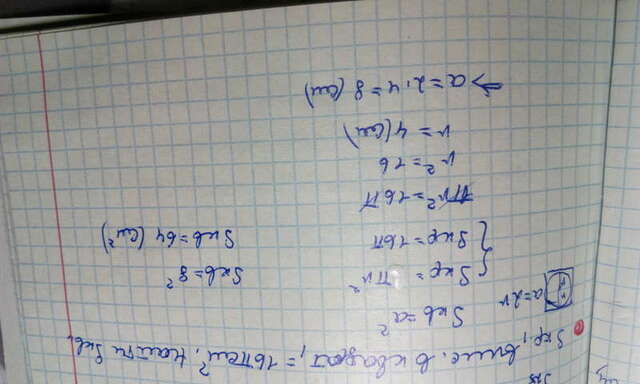 Sкр, впис. в квадрат, = 16π см², найти Sкв.
a=2r
Sкв=a²
{ Sкр = πr²
{ Sкр = 16π
πr² = 16π
r² = 16
r = 4 (см)
⇒ a = 2·4 = 8 (см)
Sкв = 8²
Sкв = 64 (см²)